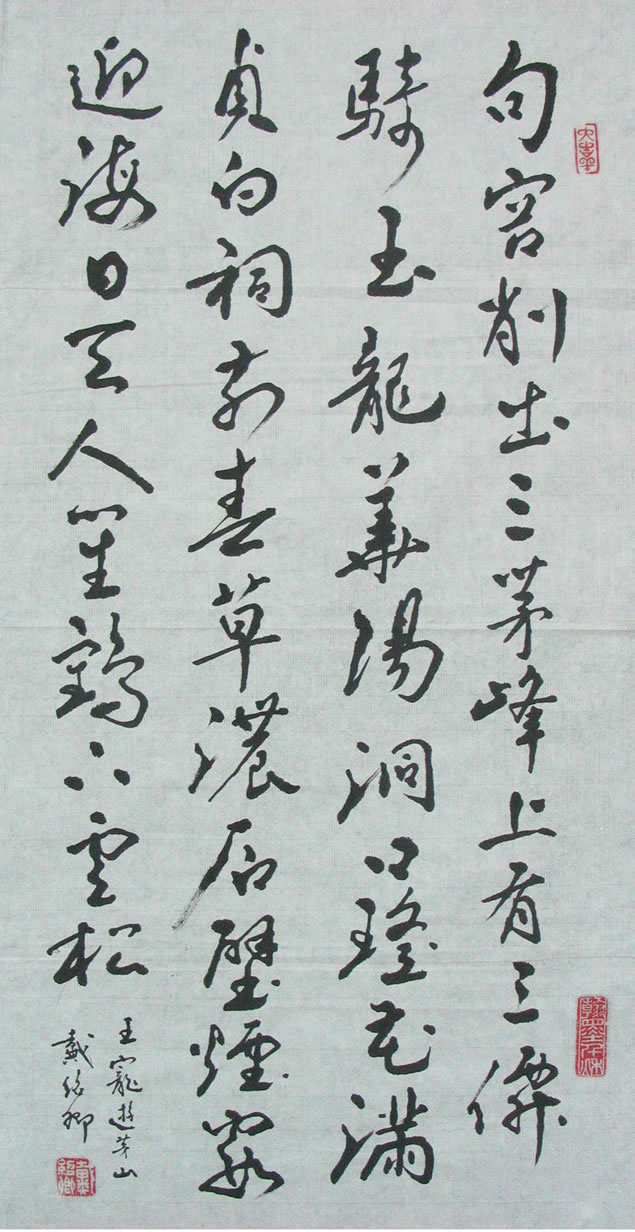 句容削出三茅峰上有三僊
騎玉龍華陽洞口瑤花滿
貞白祠前春草濃石壁煙霞
迎海日天人笙鶴下雲松
王寵遊茅山
戴紹卿